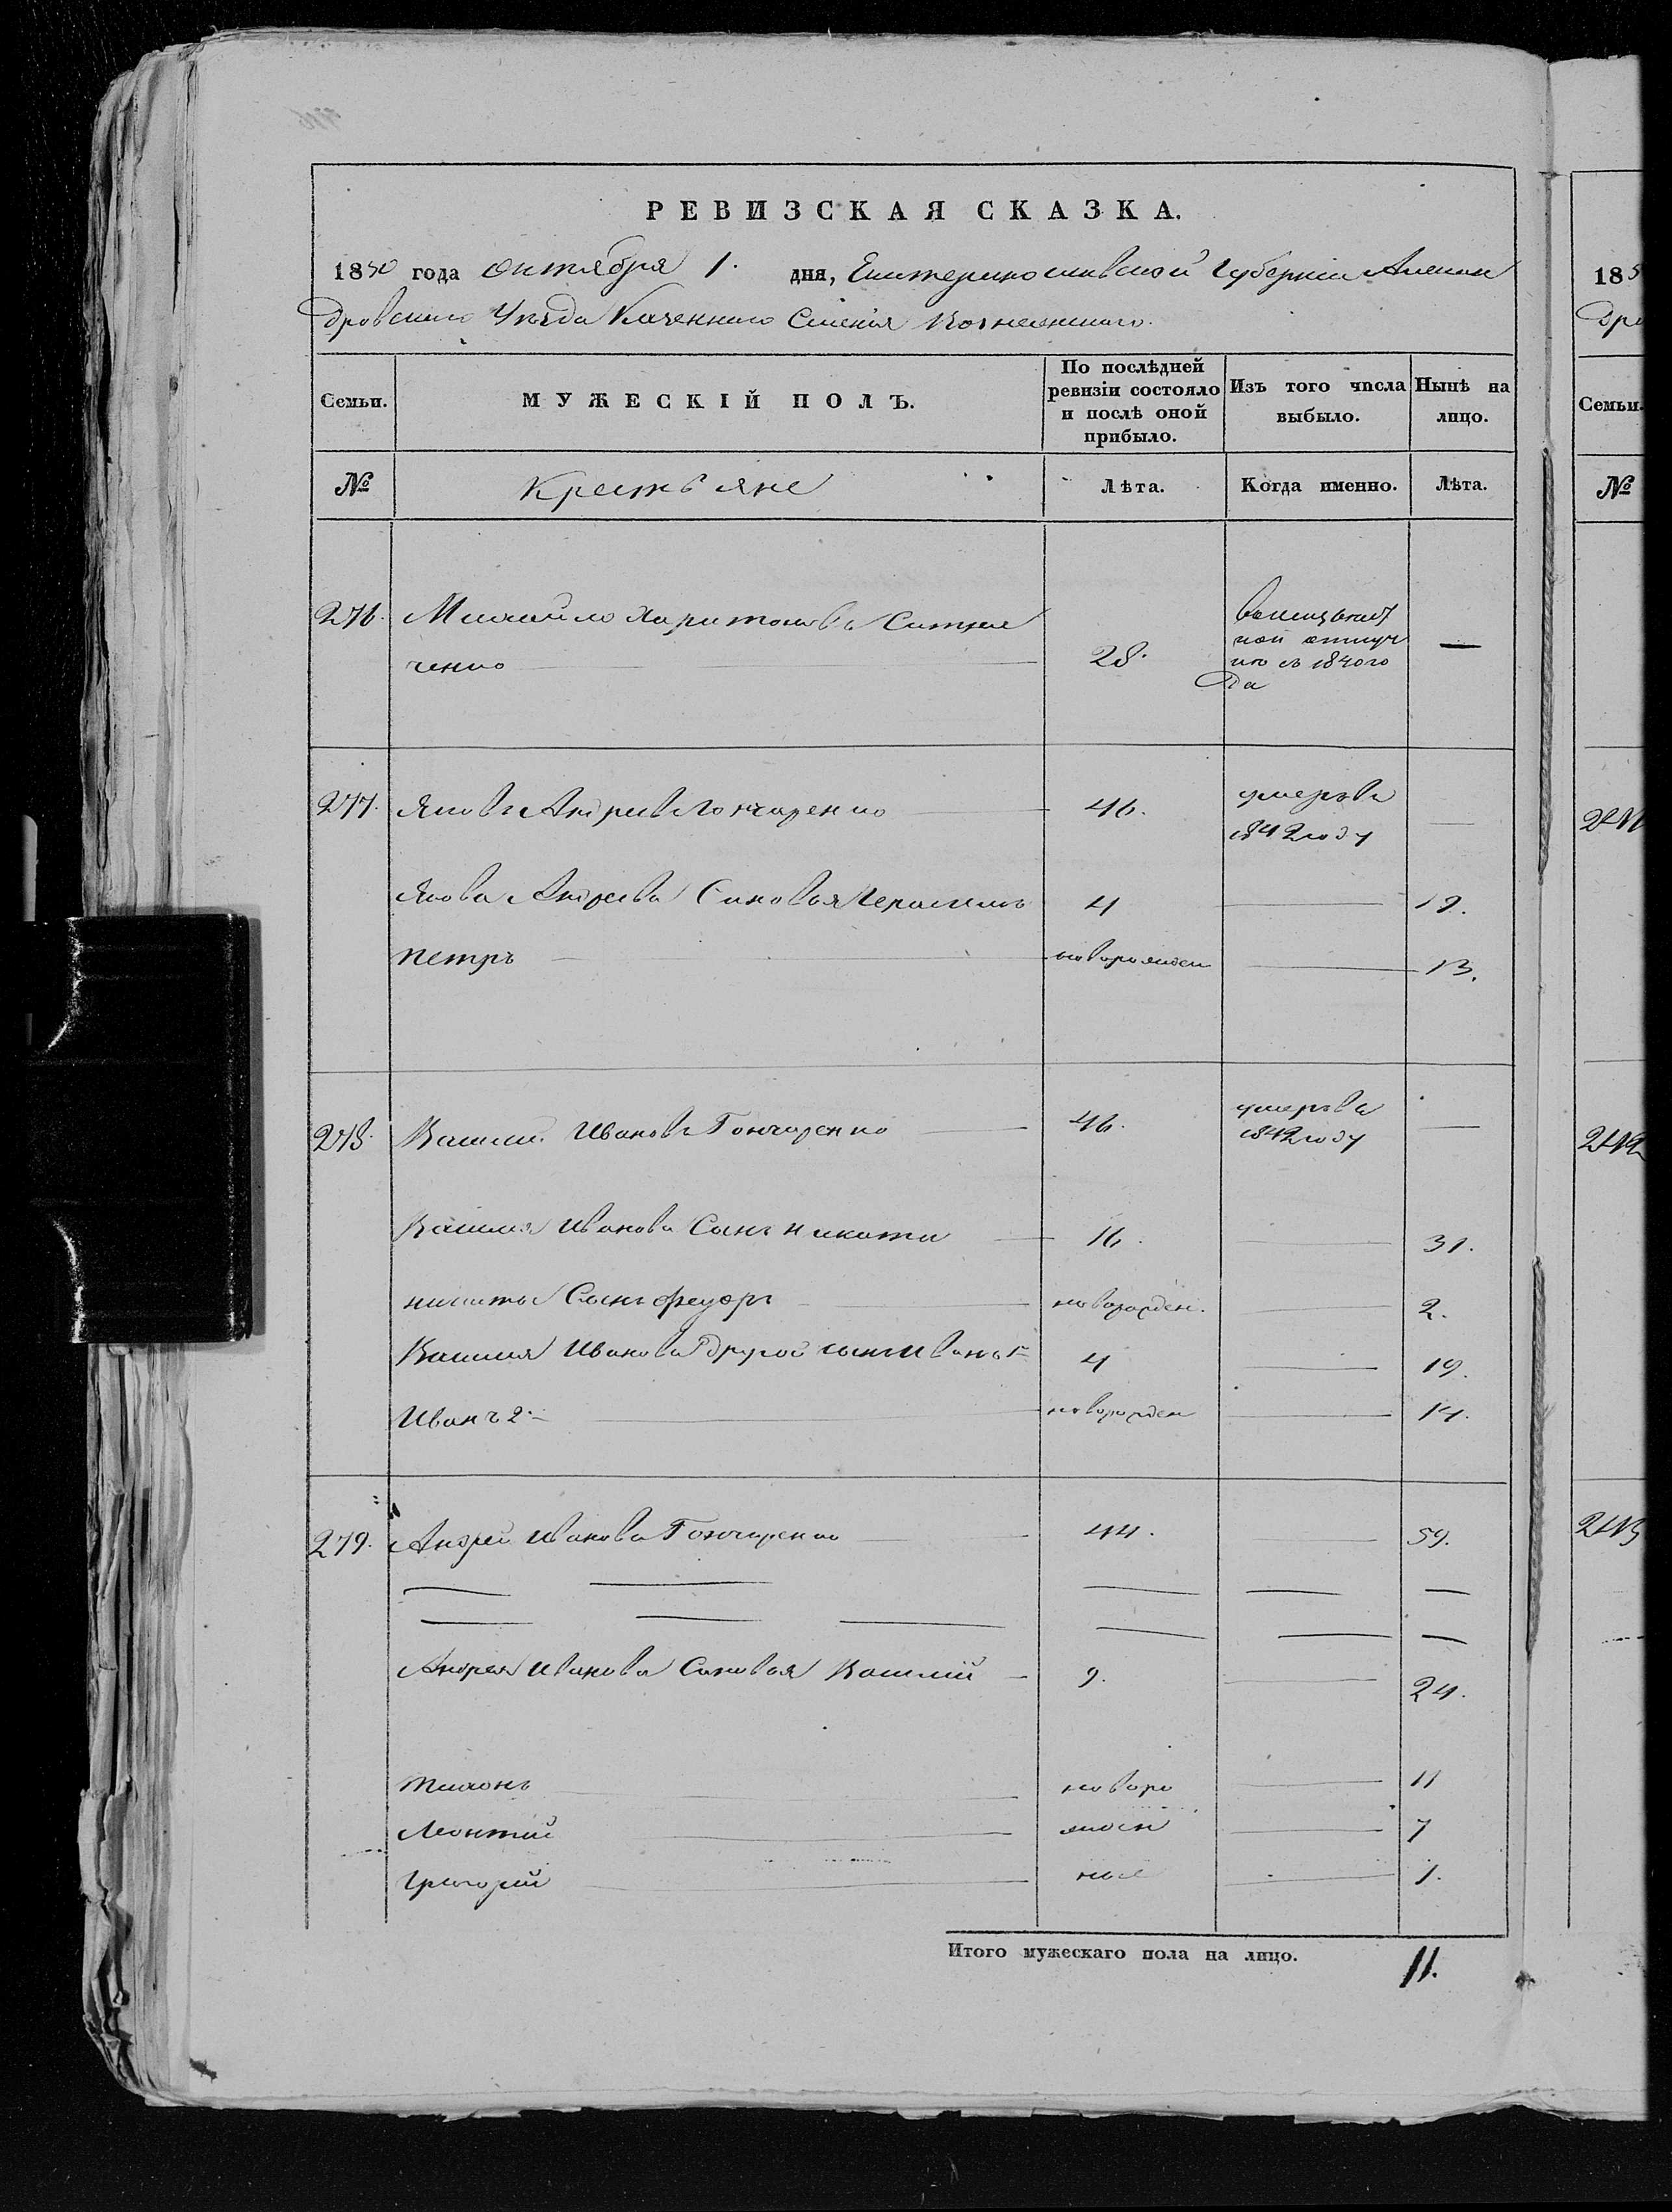 РЕВИЗСКАЯ СКАЗКА.
1850 года октября 1. дня, Екатеринославской Губерніи Алексан
дровскаго Уѣзда Казеннаго Селенія Вознесенскаго.
Семьи. МУЖЕСКІЙ ПОЛЪ. По послѣдней ревизіи состояло и послѣ оной прибыло. Изъ того числа выбыло. Нынѣ на лицо.
№ Крестьяне Лѣта. Когда именно. Лѣта.
276. Михайло Харитоновъ Ситни
ченко 28. отлуч
ке съ 1840 го
да —
277. Яковъ Андреевъ Гончаренко 46. умеръ въ
1842 году —
Якова Андреева Сыновья Герасимъ 4 — 19.
Петръ новорожден — 13.
278. Василий Ивановъ Гончаренко 46. умеръ въ
1842 году —
Василия Иванова Сынъ Никита 16. — 31.
Никиты Сынъ Федоръ новорожден. — 2.
Василия Иванова другой сынъ Иванъ 1й 4 — 19.
Иванъ 2й новорожден — 14.
279. Андрей Ивановъ Гончаренко 44. — 59.
Андрея Иванова Сыновья Василий 9. — 24.
Тихонъ новоро — 11
Леонтий жден — 7
Григорий ные — 1.
Итого мужескаго пола на лицо. 11.
18
Семьи.
№